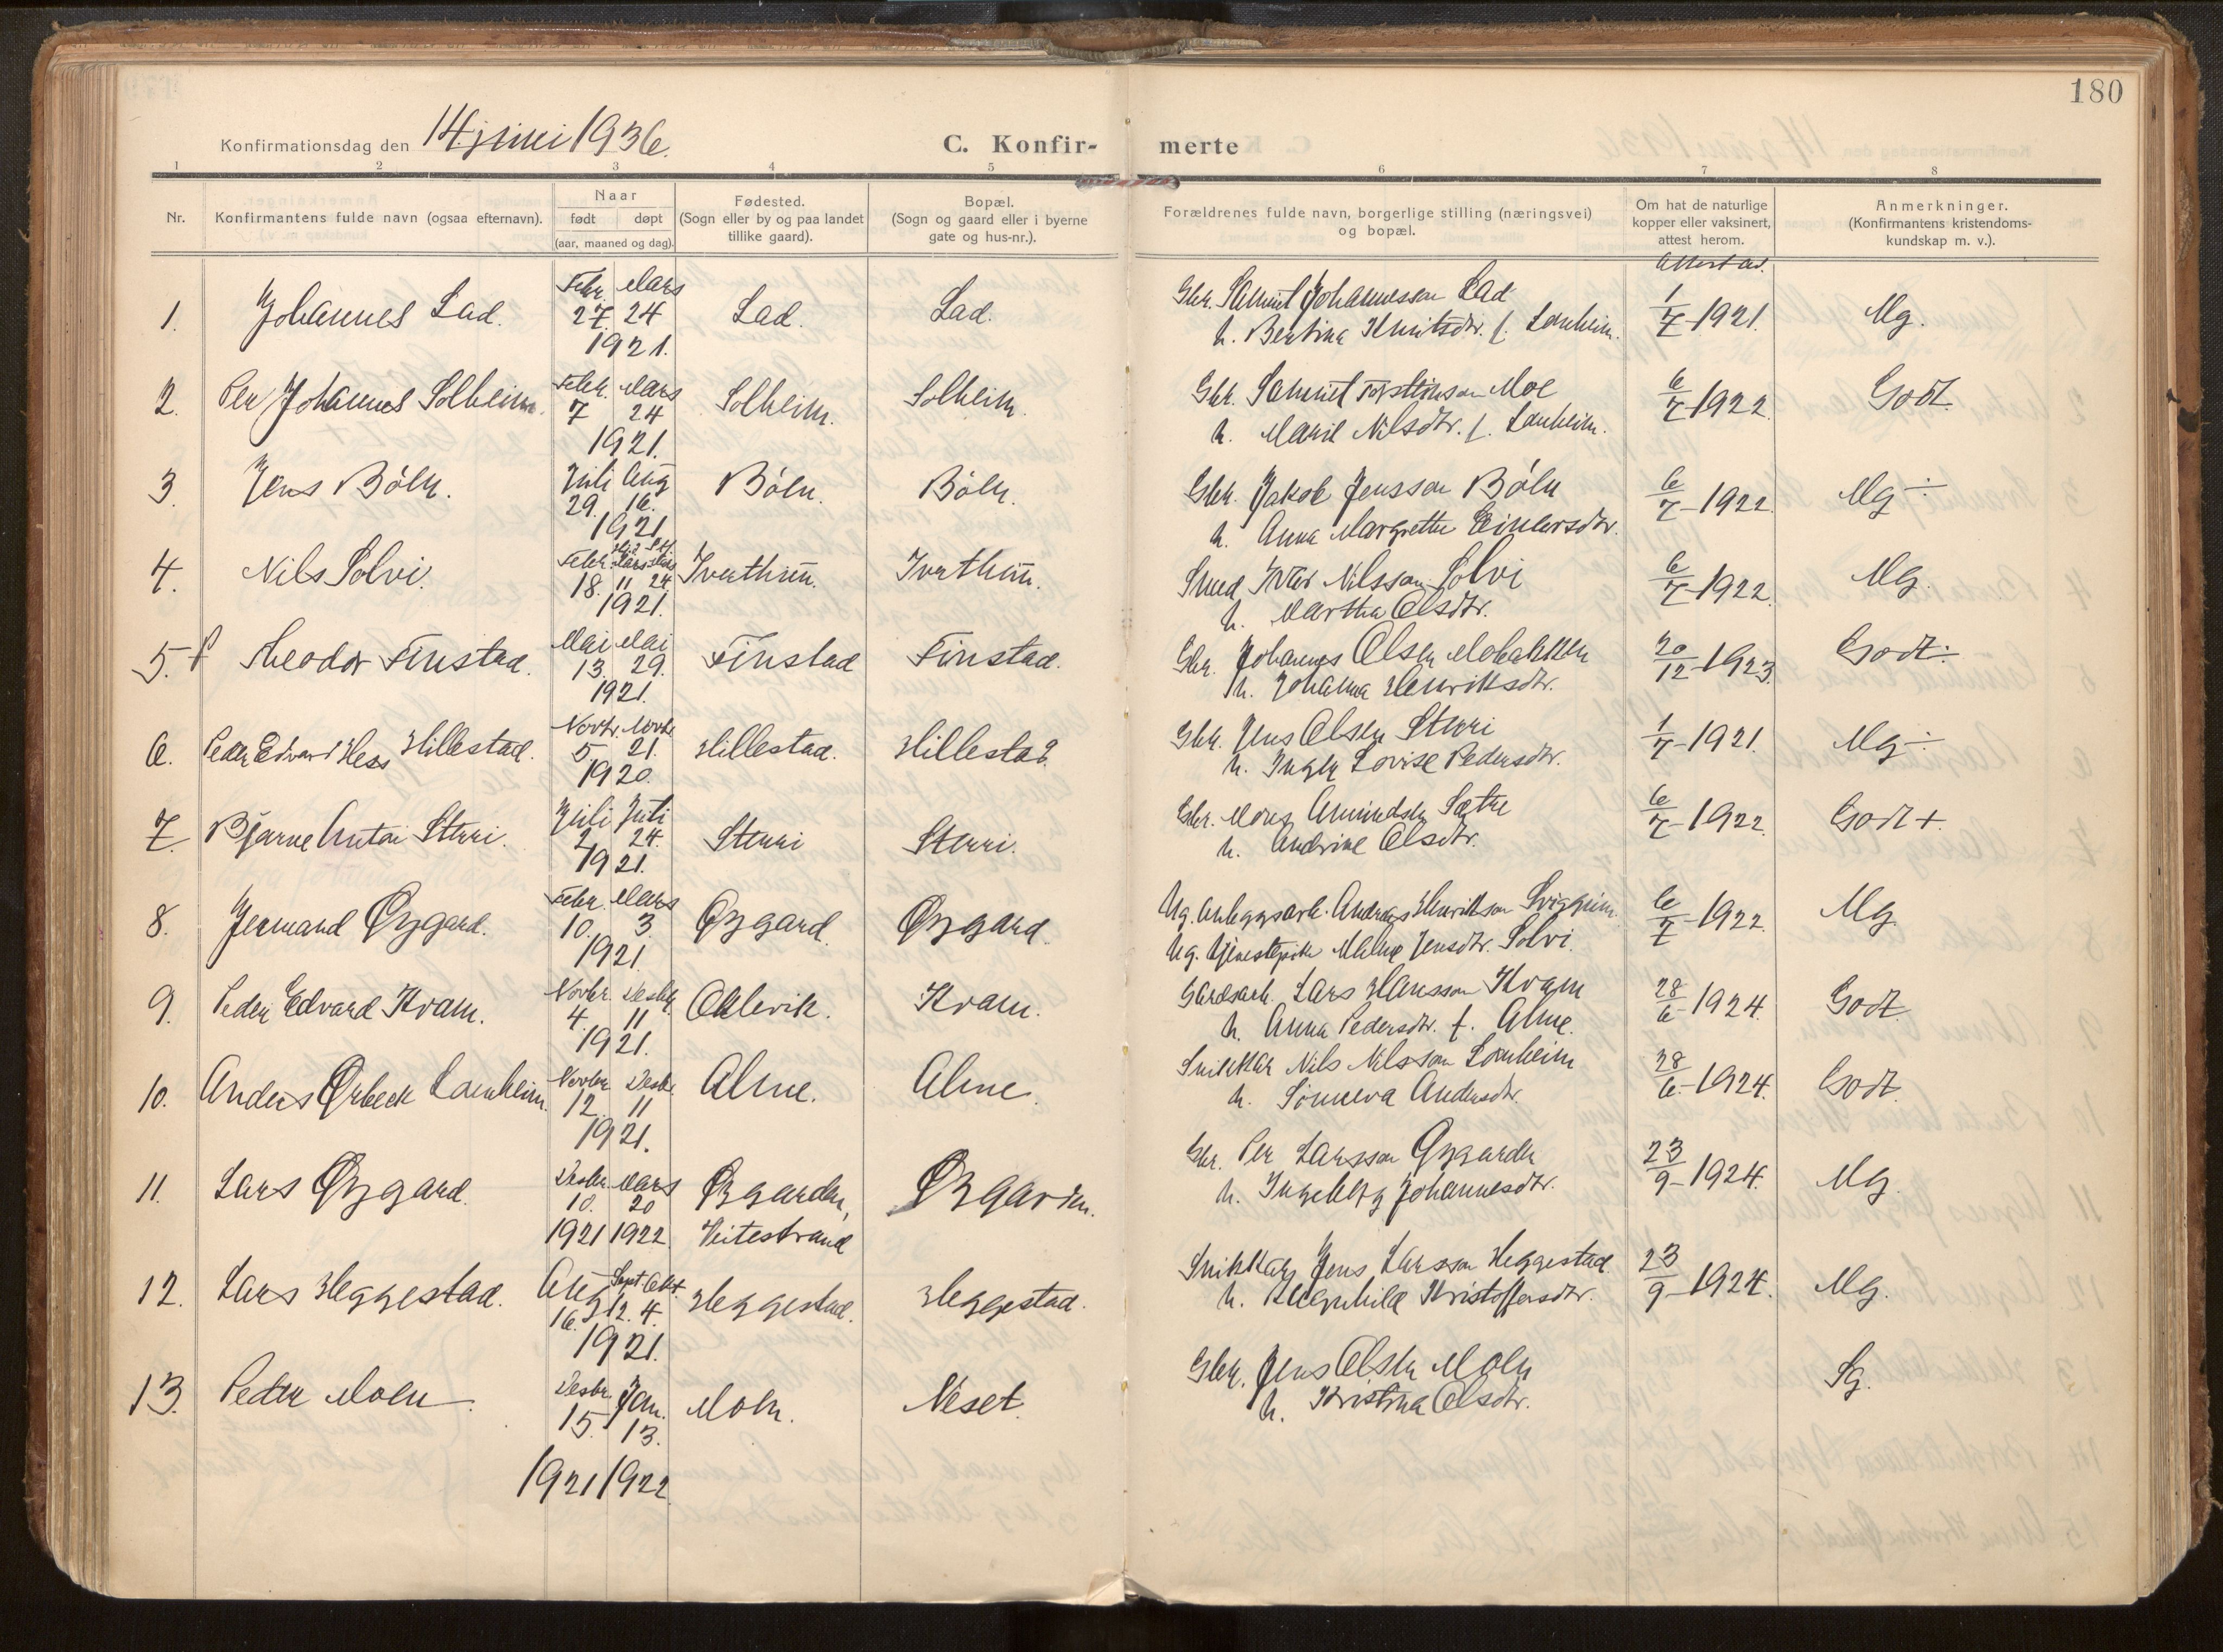 180
Konfirmationsdag den 14. juni 1936.
C. Konfir- merte
1 2 3 4 5 6 7 8
Nr.
Konfirmantens fulde navn (ogsaa efternavn).
Naar
født døpt
(aar, maaned og dag).
Fødested.
(Sogn eller by og paa landet
tillike gaard).
Bopæl.
(Sogn og gaard eller i byerne
gate og hus-nr.).
Forældrenes fulde navn, borgerlige stilling (næringsvei)
og bopæl.
Om hat de naturlige
kopper eller vaksinert,
attest herom.
Anmerkninger.
(Konfirmantens kristendoms-
kundskap m. v.).
Attest av.
1. Johannes Lad. Febr. Mars Lad. Lad. Gbr. Samuel Johannesson Lad 1/7-1921. Mg.
27. 24 h. Bertina Knutsdtr. f. Lanheim.
1921.
2. Per Johannes Solheim. Febr. Mars Solheim. Solheim. Gbr. Samuel Torsteinson Moe 6/7-1922. Godt.
7 24 h. Marie Nilsdtr. f. Lanheim.
1921.
3. Jens Böln. Juli Aug Böln. Böln. Gbr. Jakob Jensson Böln 6/7-1922. Mg ÷
29. 16. h. Anna Margrethe Einarsdtr.
1921
4. Nils Solvi. Febr. Mars Iverthun. Iverthun. Smed Ivar Nilsson Solvi 6/7-1922. Mg.
18. 11 24. h. Martha Olsdtr.
1921.
5. Theodor Finstad. Mai Mai Finstad Finstad. Gbr. Johannes Olsen Mobakken 20/12-1923. Godt ÷
13. 29. h. Johanna Henriksdtr.
1921.
6. Peder Edvard Hess Hillestad. Novbr. Novbr. Hillestad. Hillestad. Gbr. Jens Olsen Sturi 1/7-1921. Mg ÷
5. 21. h. Inger Lovise Pedersdtr.
1920.
7. Bjarne Anton Sturi. Juli Juli Sturi Sturi. Gbr. Mons Amundsen Sætre 6/7-1922. Godt +.
2 24. h. Andrine Olsdtr.
1921.
8. Jermand Øygard. Febr. Mars Øygard. Øygard. Ug. anleggsarb. Andreas Henrikson Sviggum. 6/7-1922. Mg.
10. 3. Ug. tjenestepike Malene Jensdtr. Solvi.
1921.
9. Peder Edvard Kvam. Novbr. Desbr. Oklevik. Kvam. Gardsarb. Lars Hansson Kvam 28/6-1924. Godt.
4. 11 h. Anna Pedersdtr. f. Alme.
1921.
10. Anders Ørbeck Lanheim. Novbr. Desbr. Alme. Alme. Snikkar Nils Nilsson Lanheim 28/6-1924. Godt.
12. 11 h. Sönneva Andersdtr.
1921.
11. Lars Øygard. Desbr. Mars Øygarden, Øygarden. Gbr. Per Larsson Øygarden 23/9-1924. Mg.
10. 20 h. Ingeborg Johannesdtr.
1921 1922 Veitestrand
12. Lars Heggestad. Aug Sept. Okt. Heggestad. Heggestad. Snikkar Jens Larsson Heggestad 23/9-1924. Mg.
16. 12. 4. h. Ragnhild Kristoffersdtr.
1921.
13. Peder Moln. Desbr. Jan. Moln. Neset. Gbr. Jens Olsen Moln Sg.
15. 13. h. Kristina Olsdtr.
1921 1922